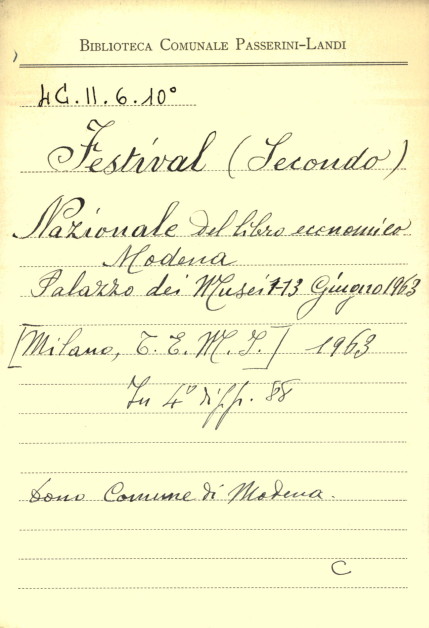 BIBLIOTECA COMUNALE PASSERINI-LANDI
4C.II.6.10°
Festival (Secondo)
Nazionale del libro economico
Modena
Palazzo dei Musei 1-13 Giugno 1963
[Milano, T. E. M. I.] 1963
In 4° di pp. 88
Dono Comune di Modena.
C